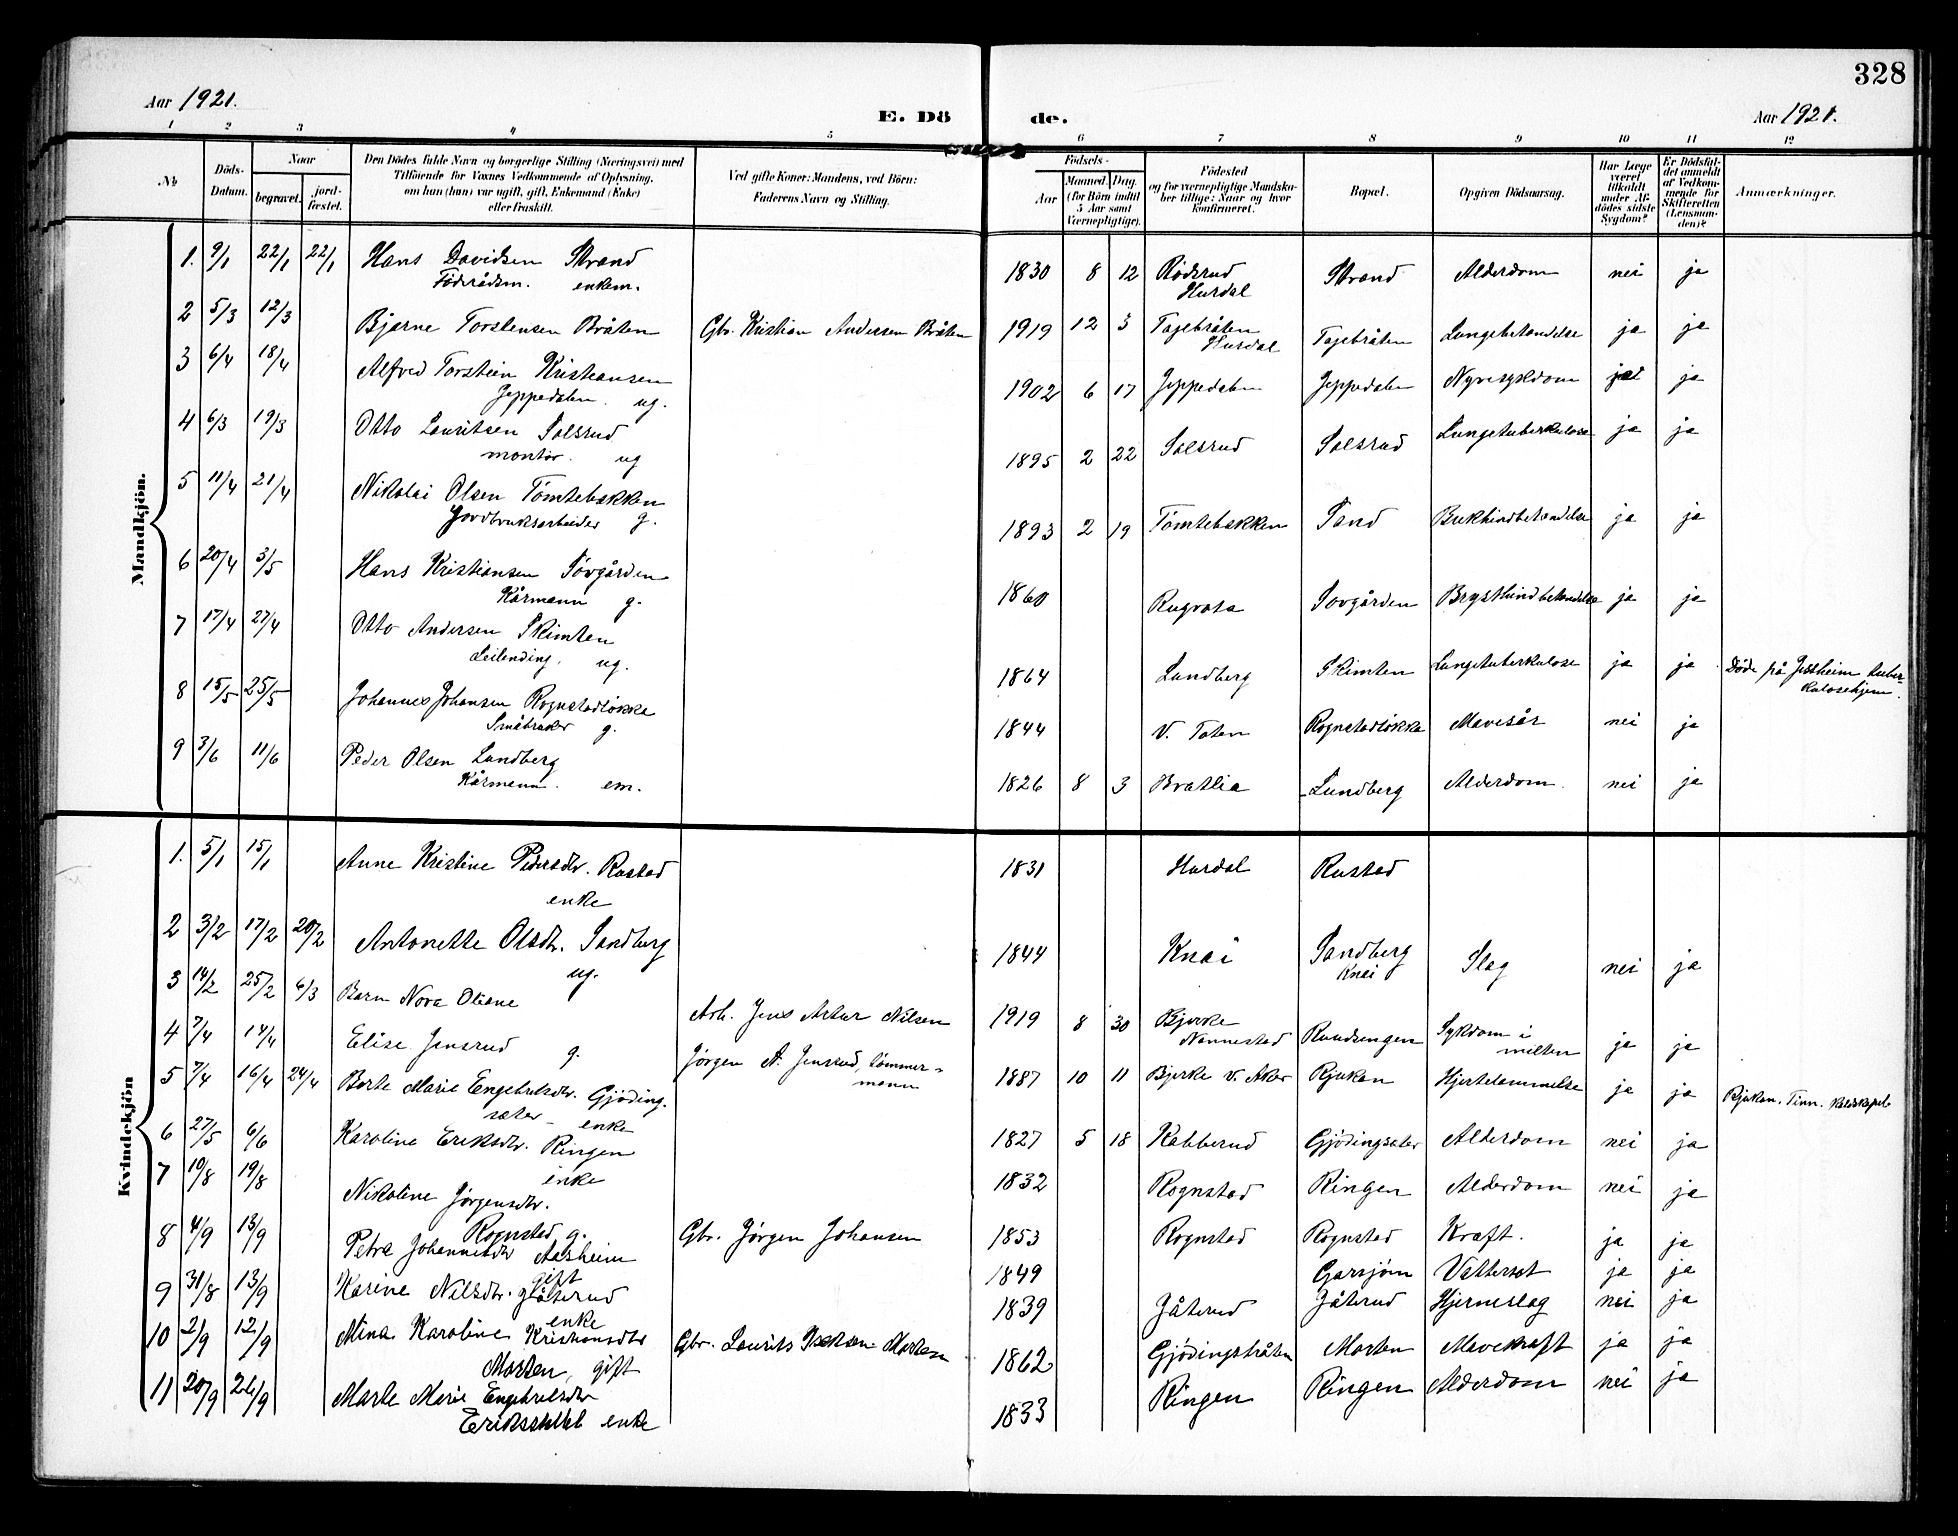 328
Aar 1921.
E. Dö de.
Aar 1921.
1 2 3 4 5 6 7 8 9 10 11 12
No
Döds-Datum.
Naar
begravet.
jord-fæstet.
Den Dödes fulde Navn og borgerlige Stilling (Næringsvei) med
Tilföiende for Voxnes Vedkommende af Oplysning,
om han (hun) var ugift, gift, Enkemand (Enke)
eller fraskilt.
Ved gifte Koner: Mandens, ved Börn:
Faderens Navn og Stilling.
Födsels-
Aar
Maaned. Dag.
(for Börn indtil
5 Aar samt
Værnepligtige).
Födested
og for værnepligtige Mandska-
ber tillige: Naar og hvor
konfirmeret.
Bopæl.
Opgiven Dödsaarsag.
Har Læge
været
tilkaldt
under Af-
dödes sidste
Sygdom?
Er Dödsfal-
det anmeldt
af Vedkom-
mende for
Skifteretten
(Lensman-
den)?
Anmærkninger.
Mandkjön.
1. 9/1 22/1 22/1 Hans Davidsen Strand 1830 8 12 Rødsrud Strand Alderdom nei ja
Föderådsm. enkem. Hurdal
2 5/3 12/3 Bjarne Torstensen Bråten Gbr. Kristian Andersen Bråten 1919 12 3 Tagebråten Tagebråten Lungebetændelse ja ja
Hurdal
3 6/4 18/4 Alfred Torstein Kristiansen 1902 6 17 Jeppedalen Jeppedalen Nyresykdom ja
Jeppedalen. ug.
4 6/3 19/3 Otto Lauritsen Solsrud 1895 2 22 Solsrud Solsrud Lungetuberkulose ja ja
montør. ug
5 11/4 21/4 Nikolai Olsen Tømtebakken 1893 2 19 Tømtebakken Sand Bukhindbetændelse ja ja
Jordbruksarbeider g.
6 20/4 3/5 Hans Kristiansen Søvgården 1860 Rugvata Sovgården Brysthindbetændelse ja ja
Kårmann g.
7 17/4 27/4 Otto Andersen Skimten 1864 Lundberg Skimten Lungetuberkulose ja ja Døde på Jessheim tuber-
Leilending. ug. kulosehjem.
8 15/5 25/5 Johannes Johansen Rognstadløkka 1844 V. Toten Rognstadløkka Mavesår nei ja
Småbruker g.
9 3/6 11/6 Peder Olsen Lundberg 1826 8 3 Bratlia Lundberg Alderdom. nei ja
Kårmann. em.
Kvindekjön
1. 5/1 15/1 Anne Kristine Pedersdtr. Rustad 1831 Hurdal Rustad
enke
2 3/2 17/2 20/2 Antonette Olsdtr. Sandberg 1844 Knai Sandberg Slag nei ja
ug. Knai
3 14/2 25/2 6/3 Barn Nora Otiane Arb. Jens Artur Nilsen 1919 8 30 Bjerke Rundungen Sykdom i ja ja
Nannestad milten
4 7/4 14/4 Elise Jensrud g. Jørgen A. Jensrud, tømmer-
mann 1887 10 11 Bjerke V. Aker Rjukan Hjertelammelse ja ja Rjukan, Tinn.
5 7/4 16/4 24/4 Berte Marie Engebretsdtr. Gjøding-
sæter enke 1827 5 18 Kabberud Gjødingsæter Alderdom nei ja
6 27/5 6/6 Karoline Eriksdtr. Ringen 1832 Rognstad Ringen Alderdom nei ja
enke
7 10/8 19/8 Nikoline Jørgensdtr.
Rognstad g. Gbr. Jørgen Johansen 1853 Rognstad Rognstad Kræft. ja ja
8 4/9 13/9 Petra Johannesdtr Aasheim 1849 Garsjøm Vattersot ja ja
gift
9 31/8 13/9 Karine Nilsdtr. Gåterud 1839 Jåterud Jåterud Hjerneslag nei ja
enke
10 2/9 12/9 Mina Karoline Kristiansdtr Gbr. Laurits Morten 1862 Gjødingsbråten Morten Mavekræft ja ja
Morten, gift
11 20/9 26/9 Marte Marie Engebretsdtr 1833 Ringen Ringen Alderdom nei ja
enke